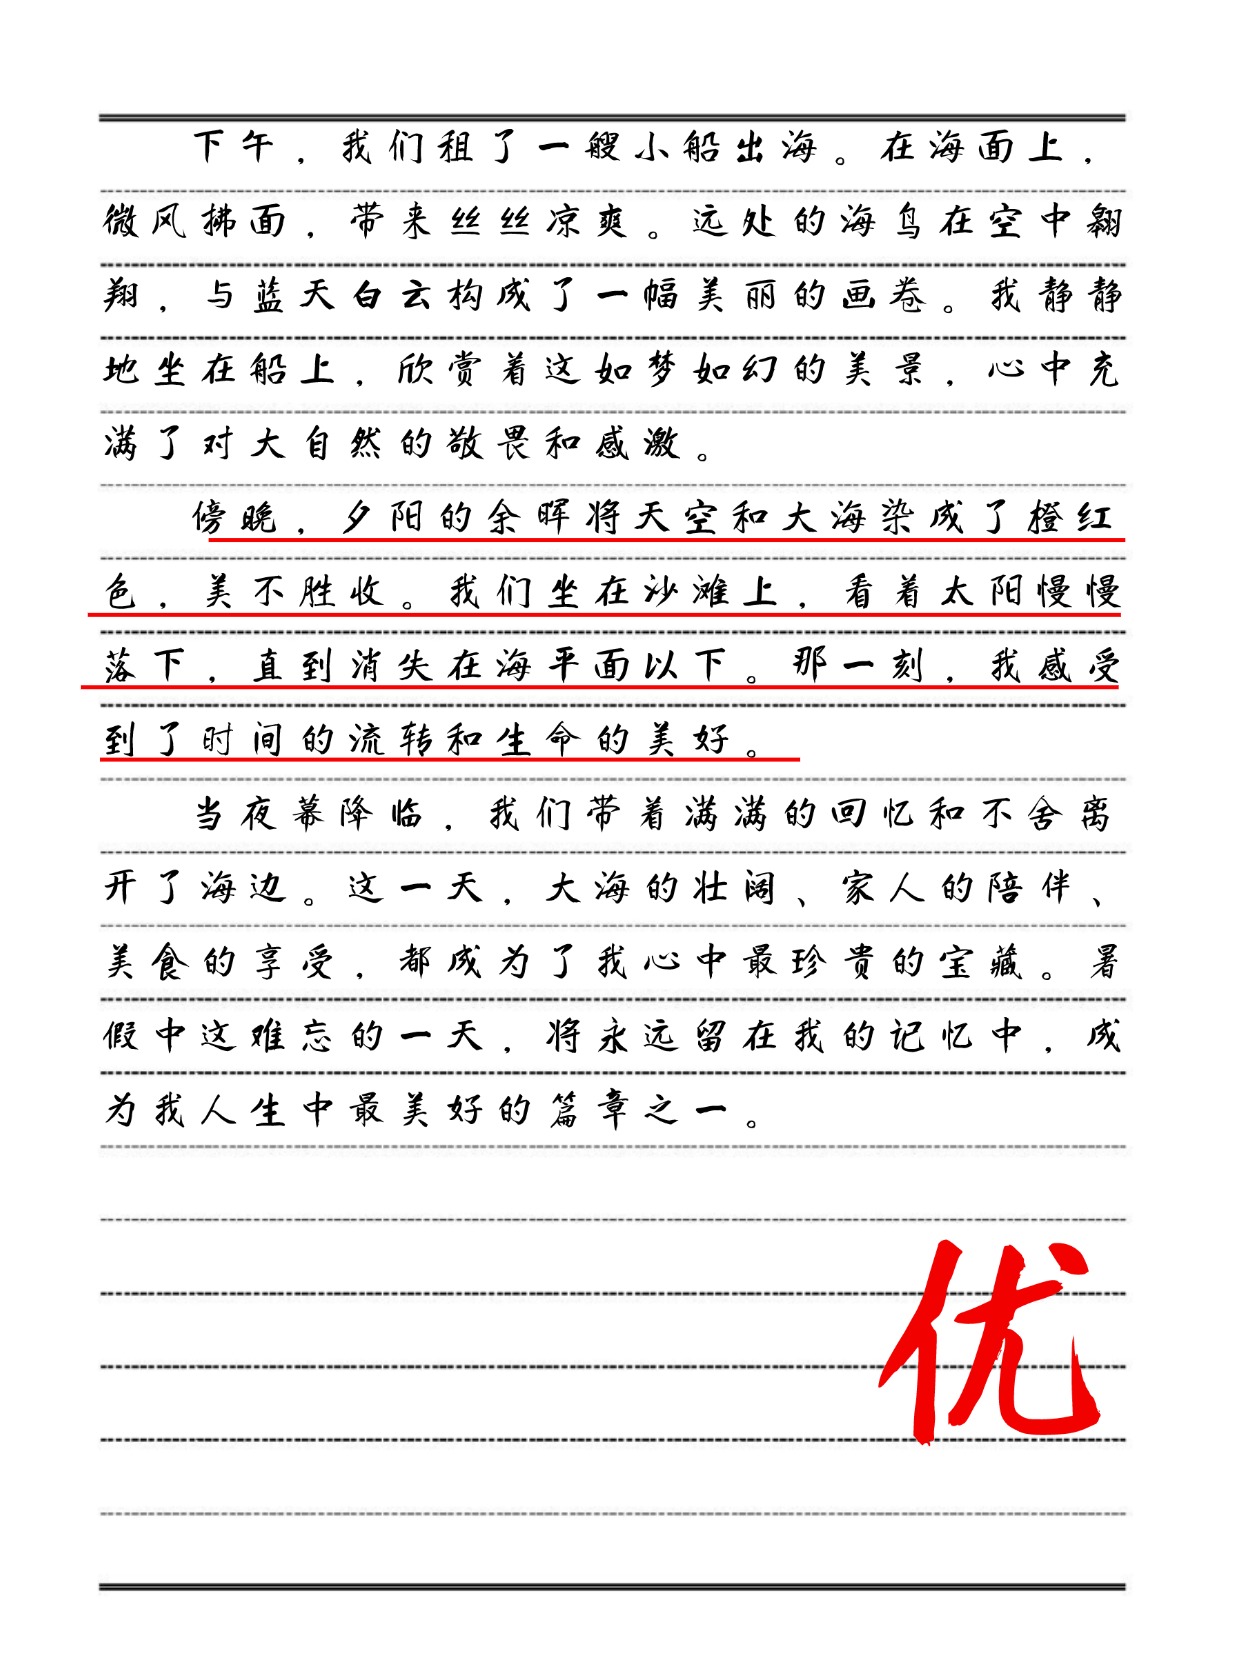 下午，我们租了一艘小船出海。在海面上，
微风拂面，带来丝丝凉爽。远处的海鸟在空中翱
翔，与蓝天白云构成了一幅美丽的画卷。我静静
地坐在船上，欣赏着这如梦如幻的美景，心中充
满了对大自然的敬畏和感激。
傍晚，夕阳的余晖将天空和大海染成了橙红
色，美不胜收。我们坐在沙滩上，看着太阳慢慢
落下，直到消失在海平面以下。那一刻，我感受
到了时间的流转和生命的美好。
当夜幕降临，我们带着满满的回忆和不舍离
开了海边。这一天，大海的壮阔、家人的陪伴、
美食的享受，都成为了我心中最珍贵的宝藏。暑
假中这难忘的一天，将永远留在我的记忆中，成
为我人生中最美好的篇章之一。
优